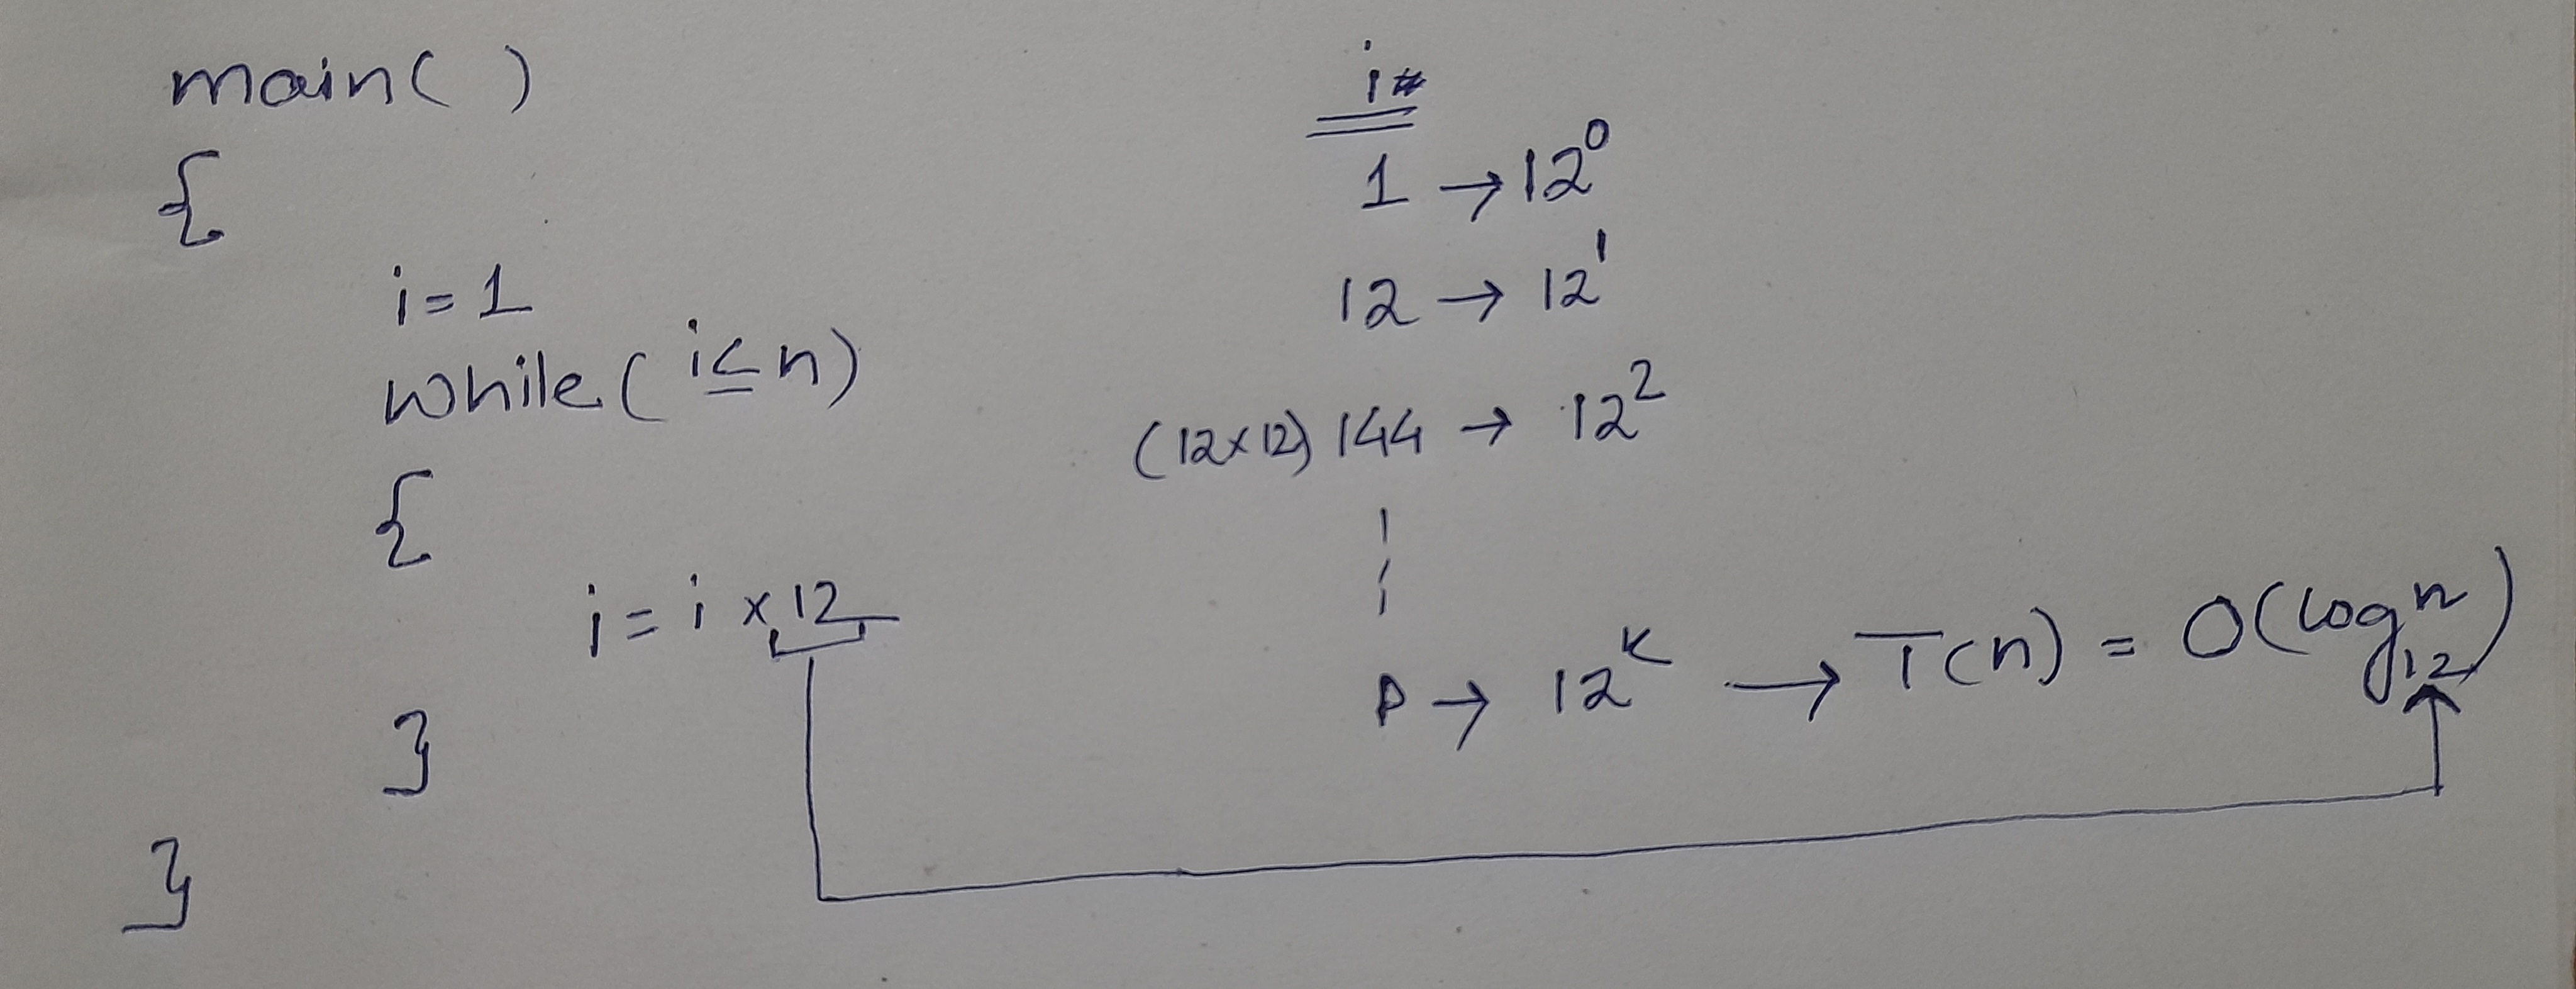 main( )
{
i = 1
while ( i ≤ n )
{
i = i × 12
}
}
i
1 → 12⁰
12 → 12¹
(12×12) 144 → 12²
P → 12ᵏ → T(n) = O(log₁₂ⁿ)